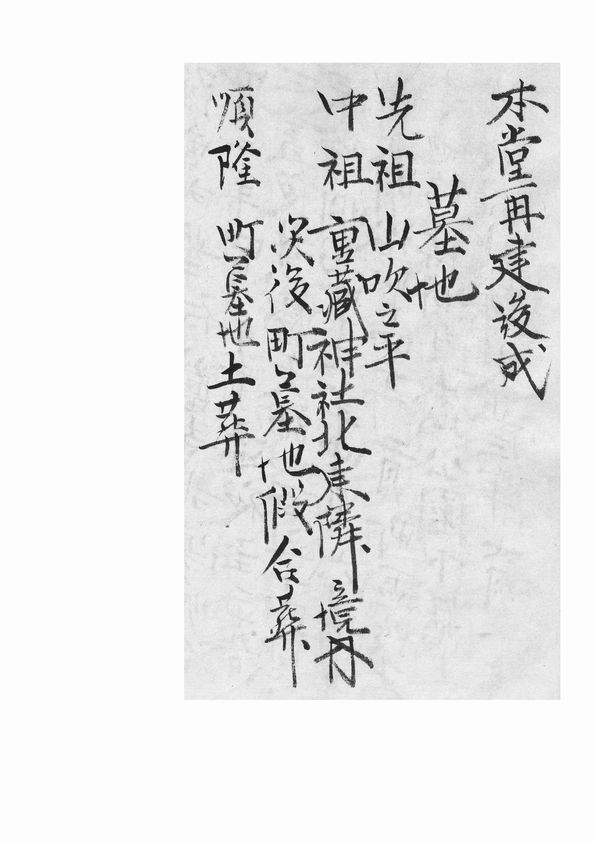 本堂再建後成
墓地
先祖 山吹之平
中祖 重蔵神社北東隣境内
次後町墓地假合葬
順隆 町墓地土葬